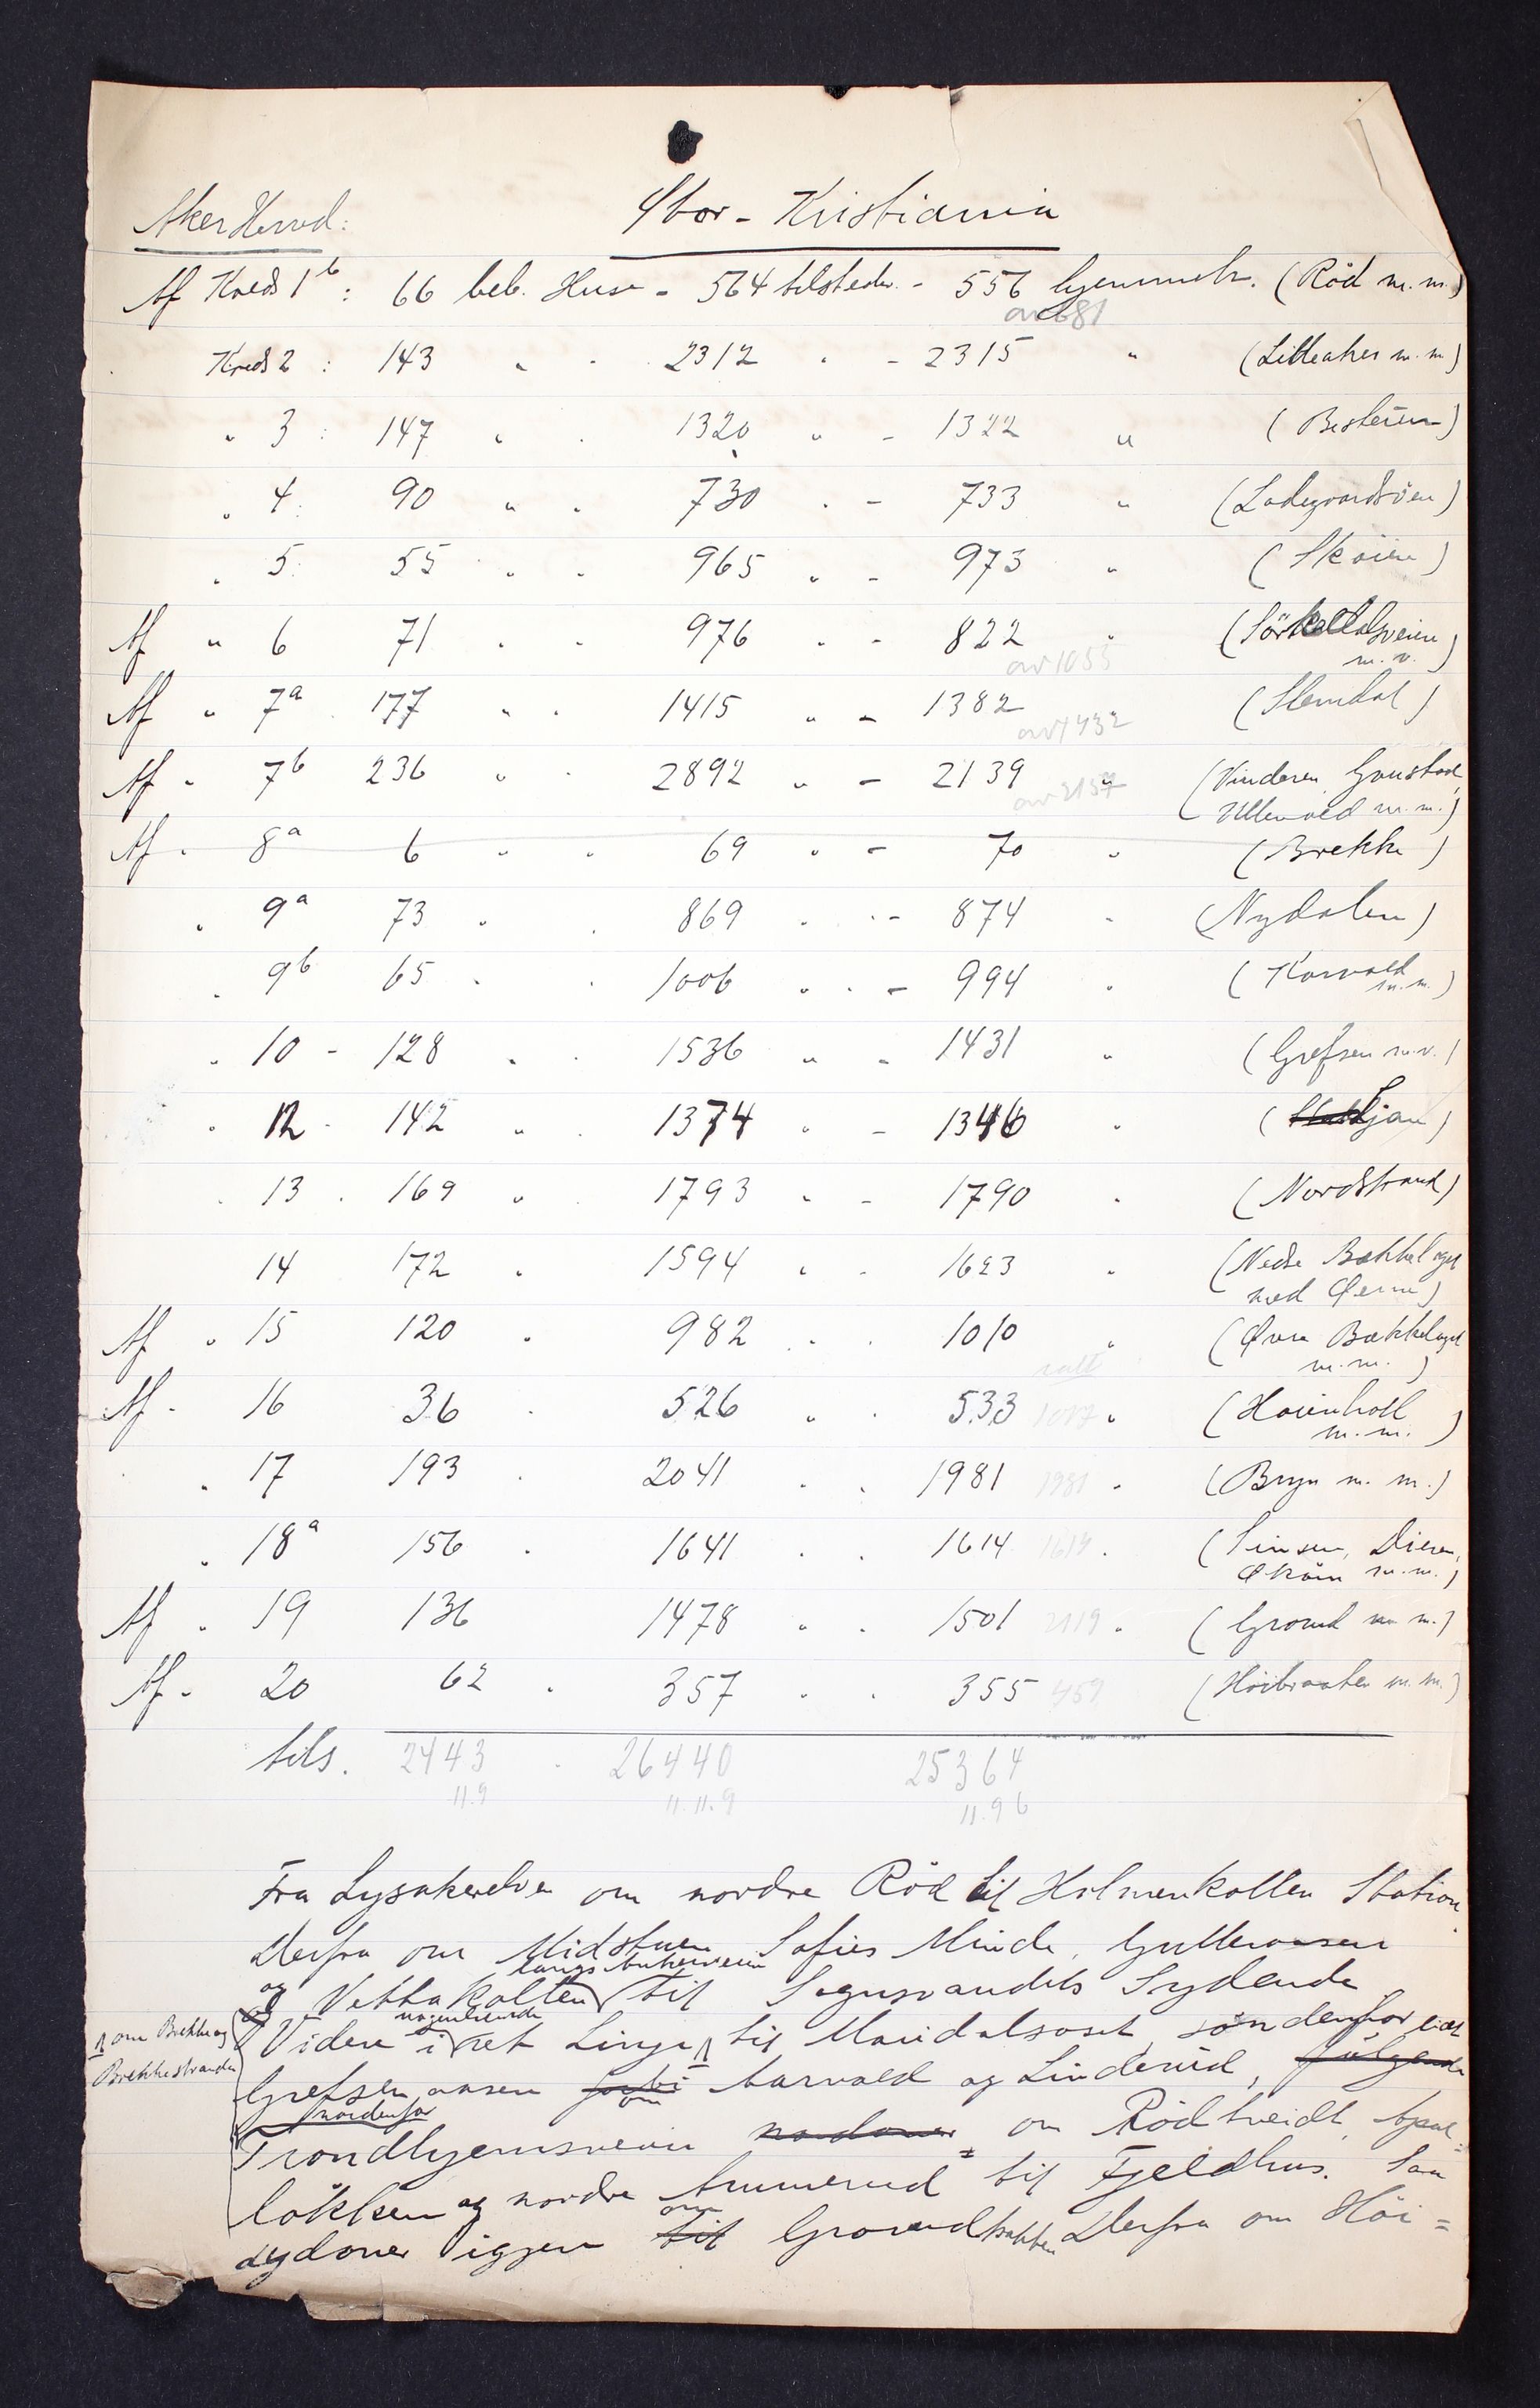 Aker Herred: Stor-Kristiania
Af Kreds 1b: 66 beb. Huse - 564 tilstedev. - 556 hjemmeh. (Röd m.m.)
av 681
Kreds 2: 143 " - 2312 " - 2315 " (Lilleaker m.m)
" 3: 147 " - 1320 " - 1322 " (Bestum)
" 4: 90 " - 730 " - 733 " (Ladegaardsöen)
" 5: 55 " - 965 " - 973 " (Sköien)
Af " 6 71 " - 976 " - 822 " (Sörkedalsveien m.v.)
av 1055
Af " 7a 177 " - 1415 " - 1382 (Slemdal)
av 1432
Af " 7b 236 " - 2892 " - 2139 " (Vinderen, Gaustad,
av 2157 Ullevaal m.m.)
Af " 8a 6 " - 69 " - 70 " (Brekke)
" 9a 73 " - 869 " - 874 " (Nydalen)
" 9b 65 " - 1006 " - 994 " (Korsvold m.m.)
" 10 - 128 " - 1536 " - 1431 " (Grefsen m.v.)
" 12 - 142 " - 1374 " - 1346 " (Ljan)
" 13 - 169 " - 1793 " - 1790 " (Nordstrand)
14 172 " 1594 " - 1623 " (Nedre Bækkelaget
med Øerne)
Af " 15 120 " 982 " - 1010 " (Øvre Bækkelaget
m.m.)
Af " 16 36 " 526 " - 533 1017 " (Höienhall
m.m.)
" 17 193 " 2041 " - 1981 1981 " (Bryn m.m.)
" 18a 156 " 1641 " - 1614 1614 " (Sinsen, Disen,
Økern m.m.)
Af " 19 136 1478 " - 1501 2119 " (Grorud m.m.)
Af " 20 62 " 357 " - 355 459 (Höibraaten m.m.)
tils. 2443 - 26440 25364
11.9 11.11.9 11.96
Fra Lysakerelven om nordre Röd til Holmenkollen Station.
Derfra om Midstuen Sofies Minde, Gulleraasen
langs Ankerveien
og Vettakollen til Sognsvandets Sydende
nogenlunde
om Brekke og Brekkestranden
Videre i ret Linje til Maridalsoset, söndenfor
Grefsenaasen forbi om Aarvold og Linderud, følgende
nordenfor
Trondhjemsveien nordover om Rödtveidt, Apal=
lökken og nordre Ammerud til Fjeldhus. Saa
om
sydover igjen til Grorudbakken. Derfra om Höi=